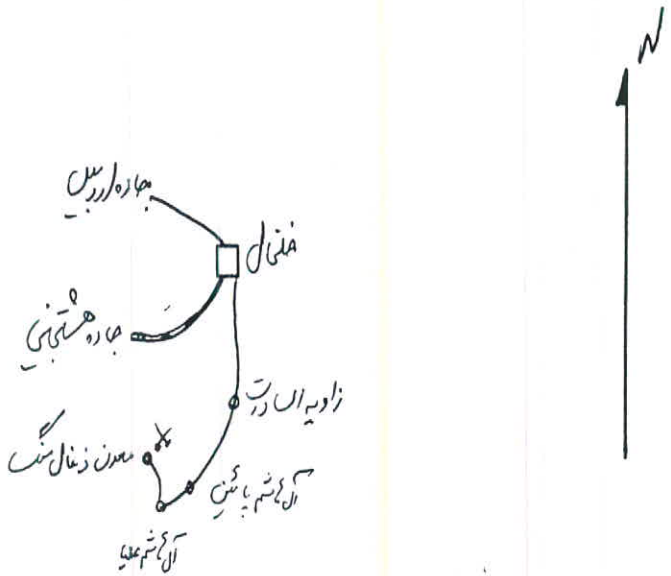 N
جاده اردبیل
خلخال
جاده هشتجین
زاویه السادات
معدن ذغال سنگ
آل هاشم پائین
آل هاشم علیا